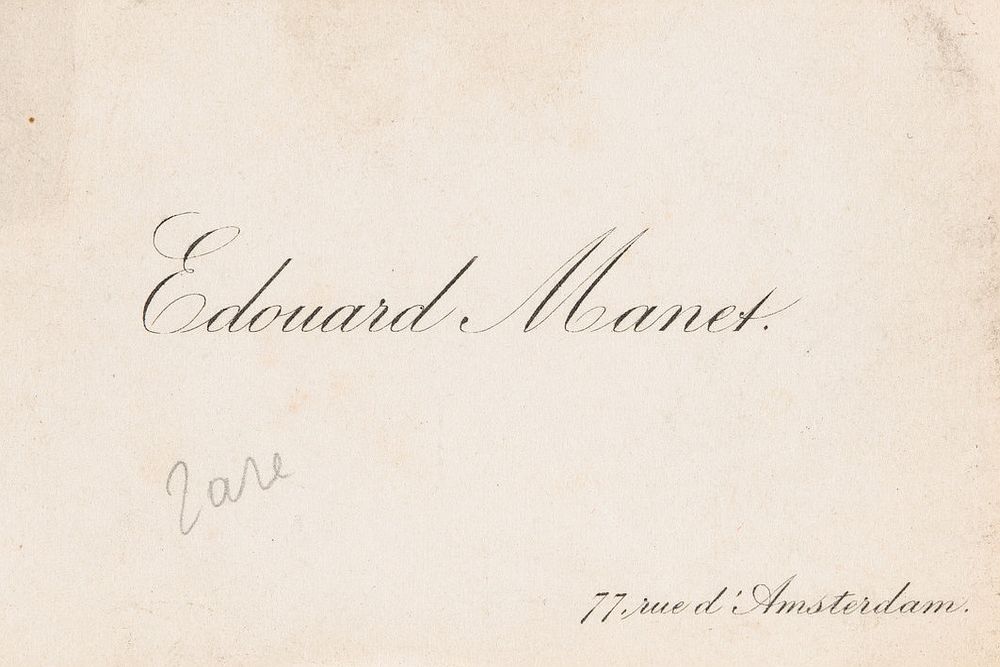 Edouard Manet.
rare
77, rue d'Amsterdam.